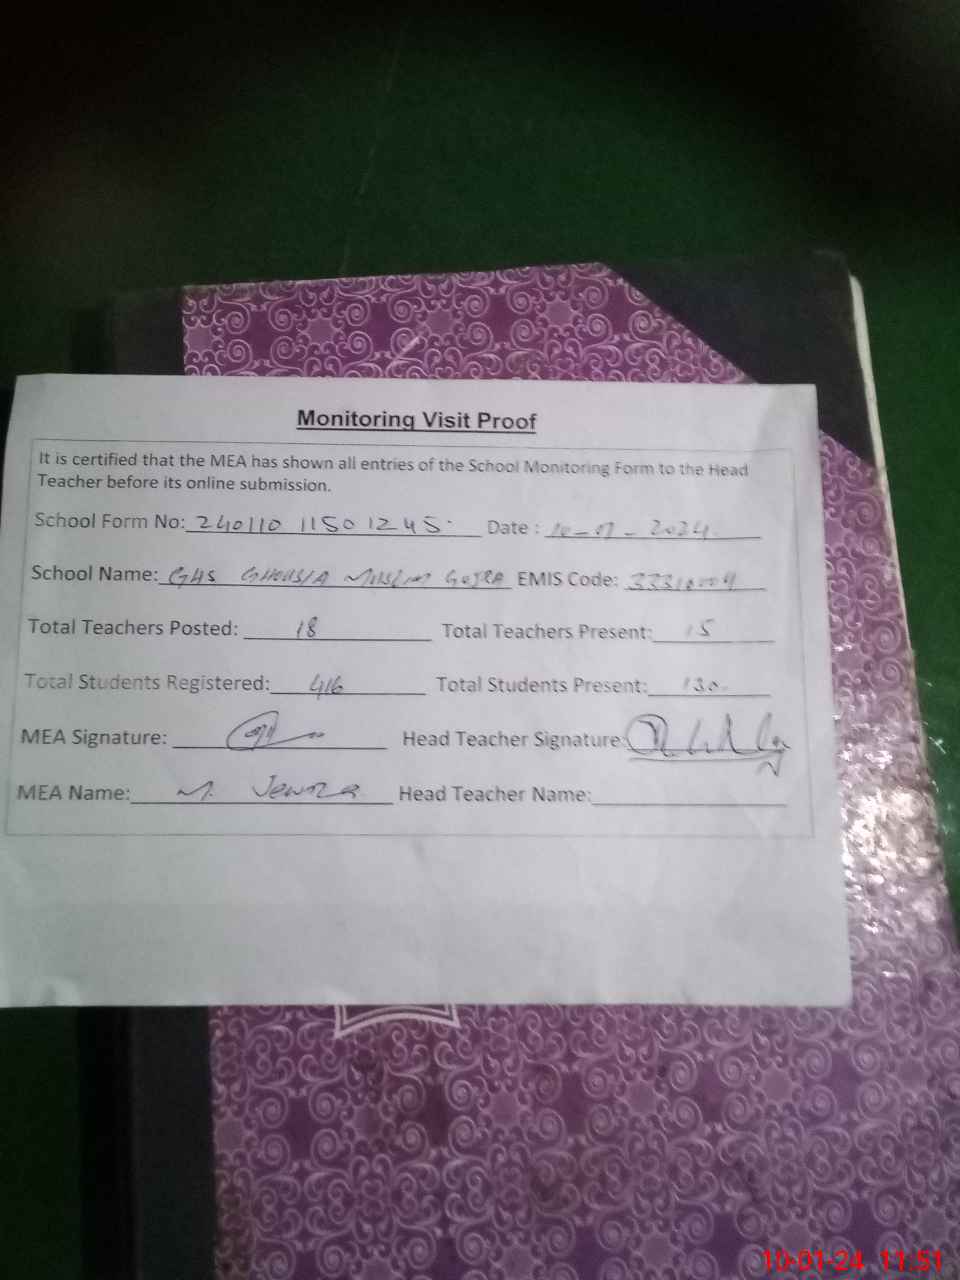 Monitoring Visit Proof
It is certified that the MEA has shown all entries of the School Monitoring Form to the Head
Teacher before its online submission.
School Form No: 240110 11501245 Date : 10-01-2024.
School Name: GHS GHOUSIA MUSLIM GOJRA EMIS Code:
Total Teachers Posted: 18 Total Teachers Present: 15
Total Students Registered: 416 Total Students Present: 130.
MEA Signature: Head Teacher Signature:
MEA Name: M. Head Teacher Name:
10-01-24 11:51